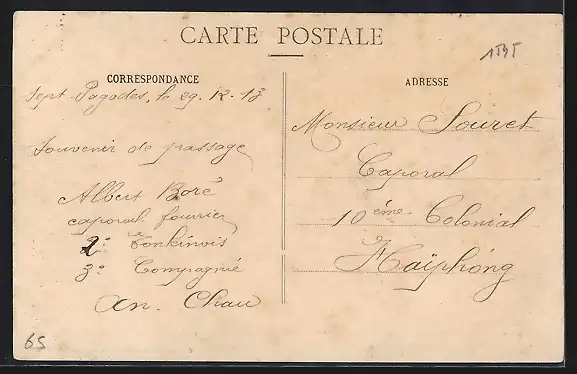 CARTE POSTALE
1545
CORRESPONDANCE
ADRESSE
Sept Pagodes, le 29. 12. 13
Souvenir de passage
Albert Boré
caporal fourrier
2e Tonkinois
3e Compagnie
An. Chau
Monsieur Souret
Caporal
10ème Colonial
Haïphong
65